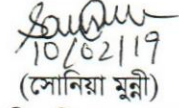 10/02/19
(সোনিয়া মুন্নী)